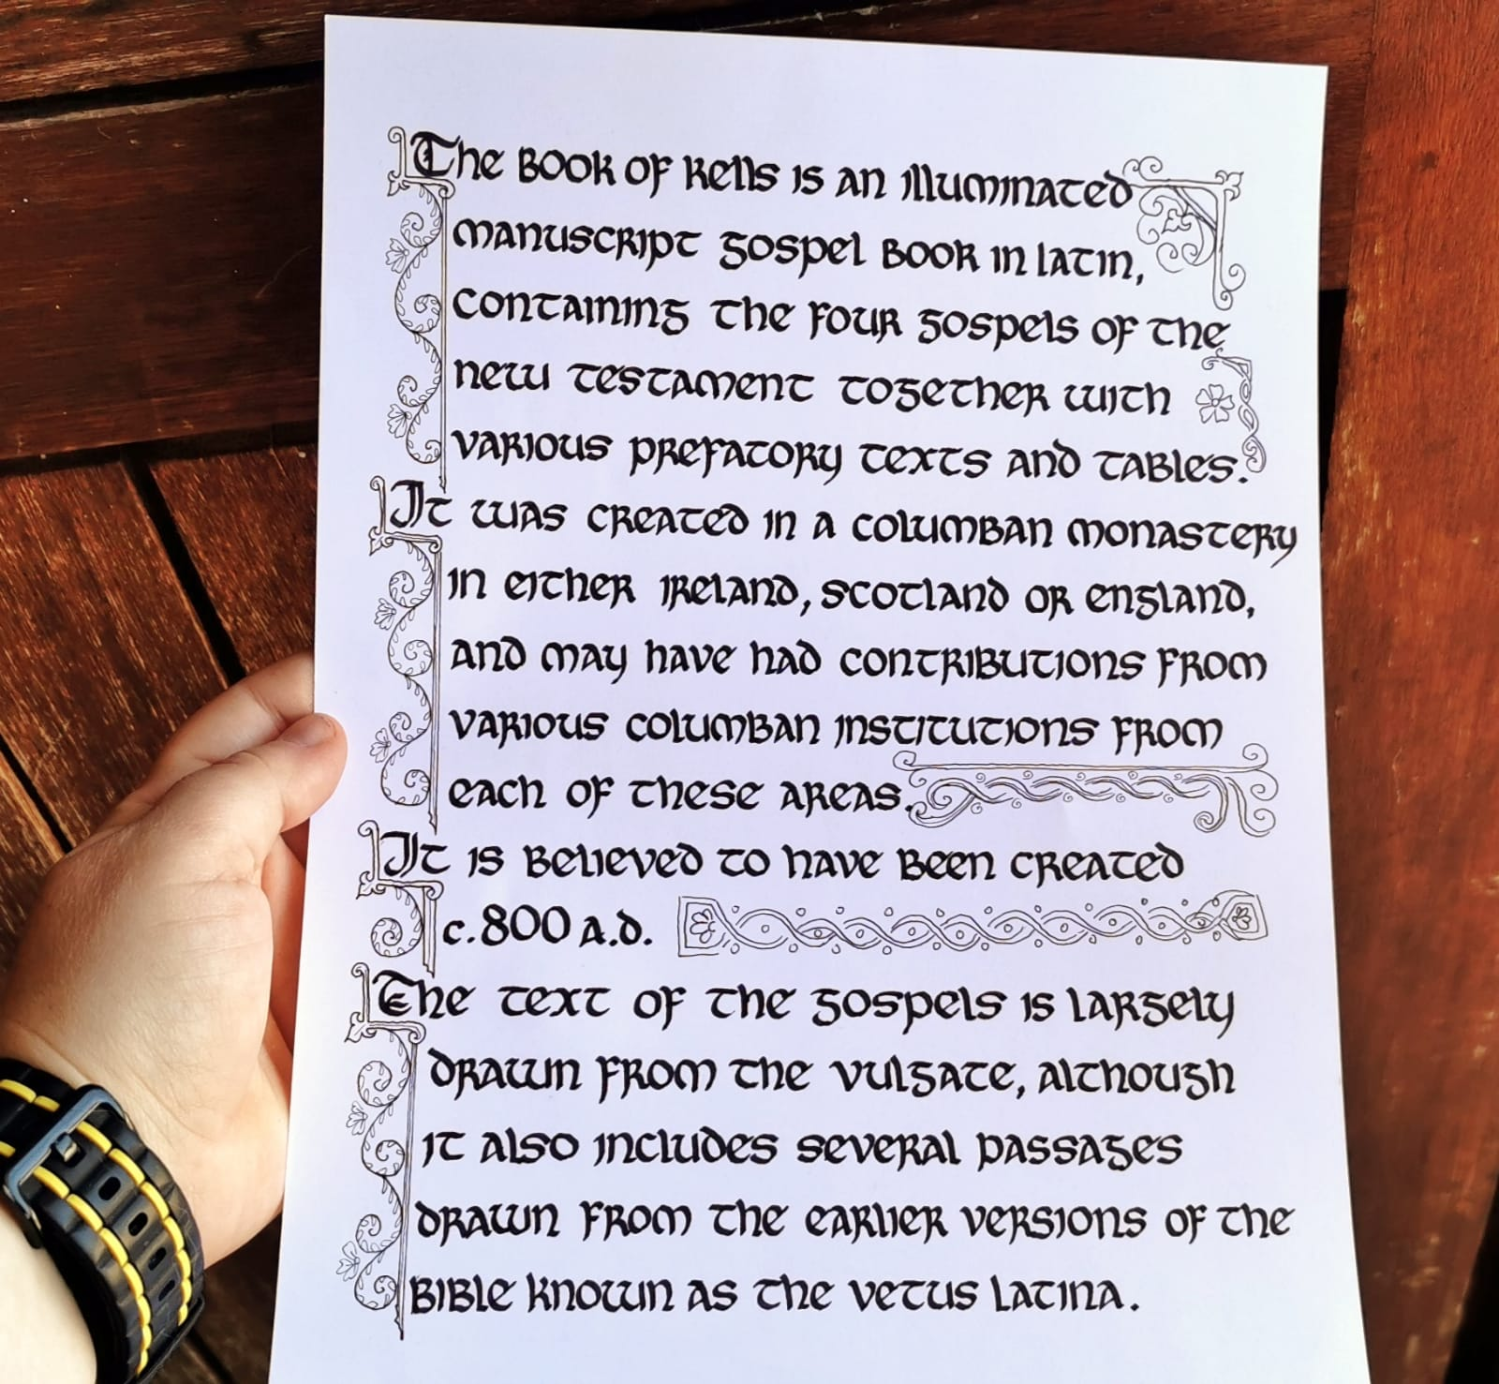 The Book of Kells is an illuminated
manuscript gospel book in latin,
containing the four gospels of the
new testament together with
various prefatory texts and tables.
It was created in a columban monastery
in either ireland, scotland or england,
and may have had contributions from
various columban institutions from
each of these areas.
It is believed to have been created
c.800 a.d.
The text of the gospels is largely
drawn from the vulgate, although
it also includes several passages
drawn from the earlier versions of the
Bible known as the vetus latina.